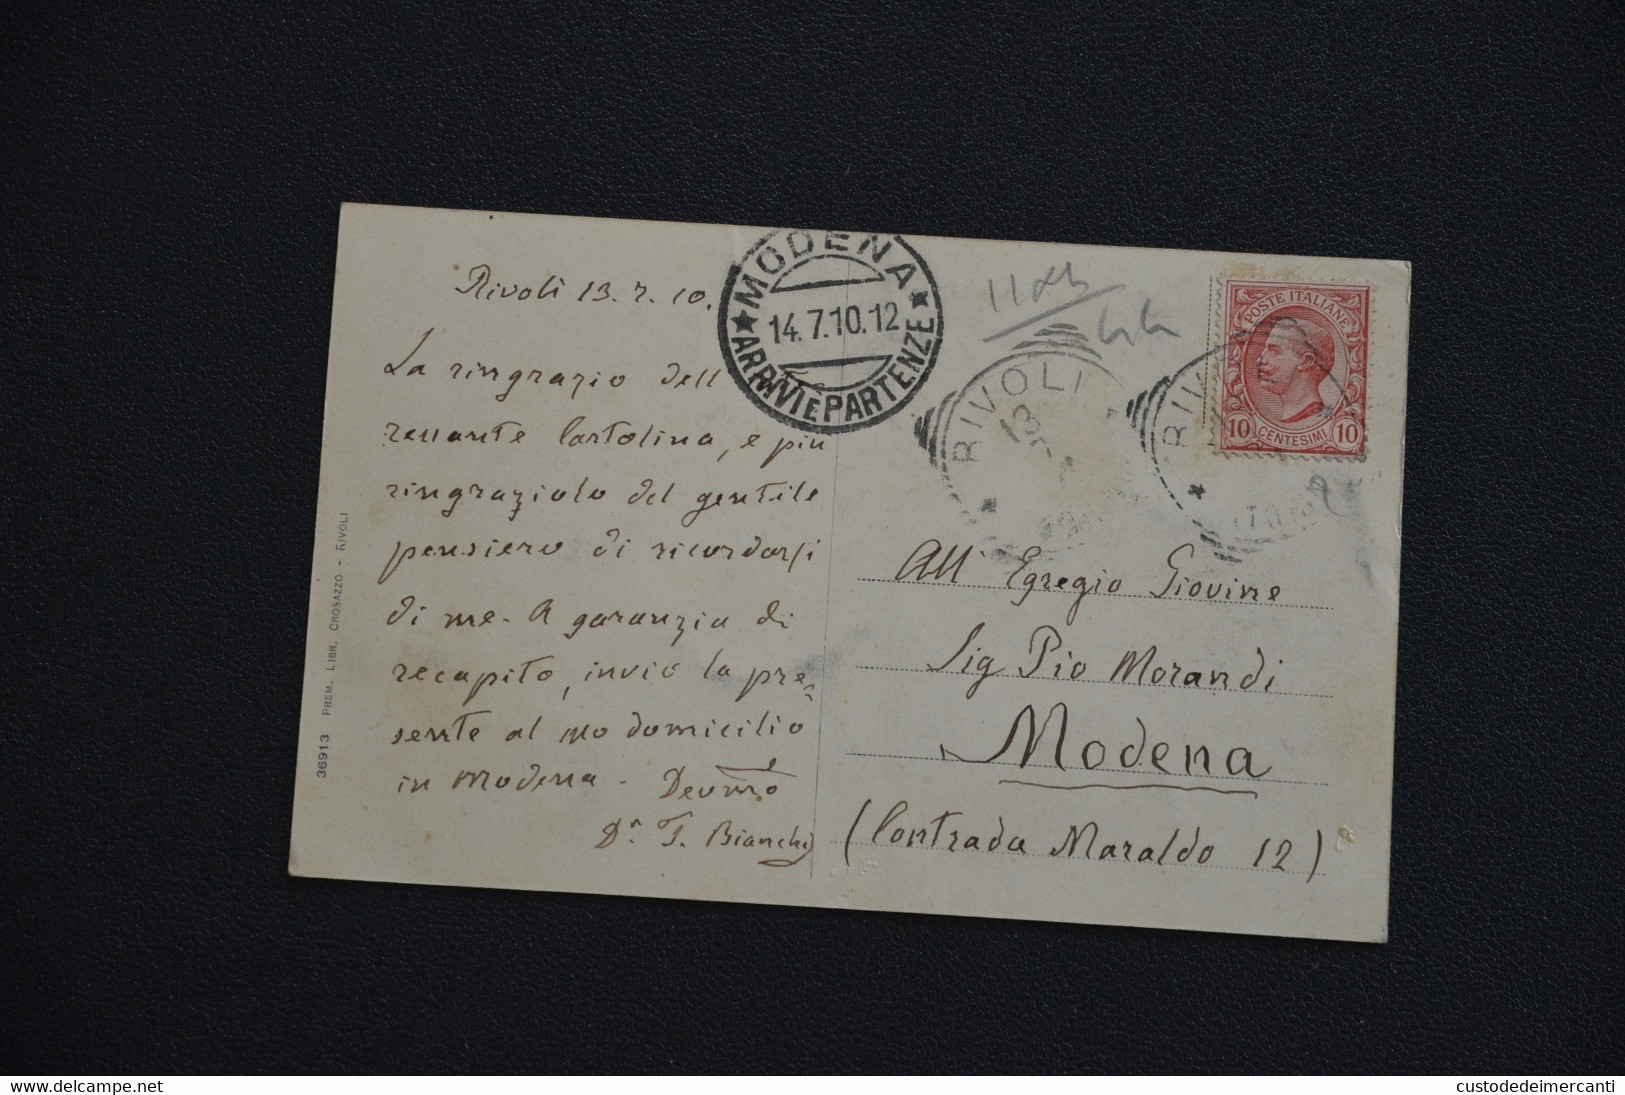 Rivoli 13.7.10.
La ringrazio dell'
cartolina, e più
ringraziolo del gentile
pensiero di ricordarsi
di me. A garanzia di
recapito, invio la pre=
sente al suo domicilio
in Modena. Devmo
Dr. Bianchi
36913 PREM. LIBR. CROSAZZO - RIVOLI
MODENA
14.7.10.12
ARRIVI E PARTENZE
RIVOLI
13
RIV
POSTE ITALIANE
10 CENTESIMI 10
All' Egregio Giovine
Sig Pio Morandi
Modena
(Contrada Maraldo 12)
www.delcampe.net
custodedeimercanti